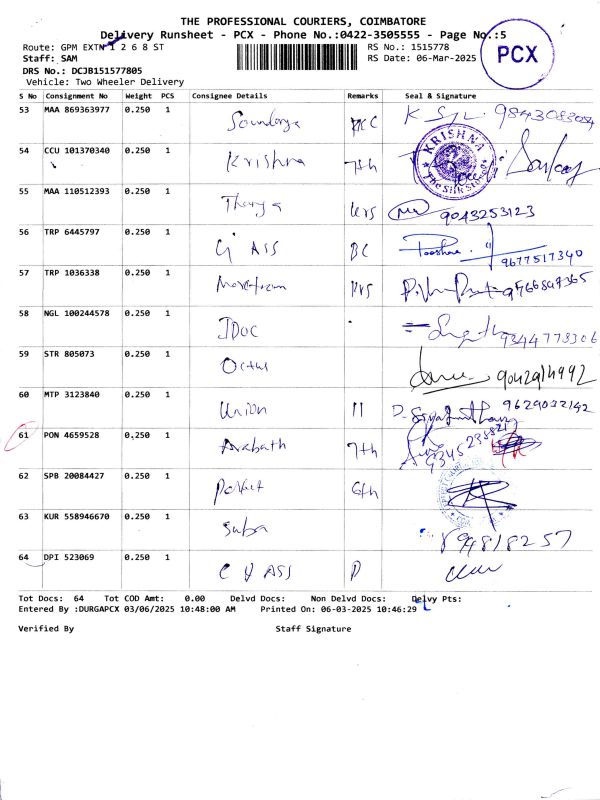 THE PROFESSIONAL COURIERS, COIMBATORE
Delivery Runsheet - PCX - Phone No.:0422-3505555 - Page No.:5
Route: GPM EXTN 1 2 6 8 ST
RS No.: 1515778
Staff: SAM
RS Date: 06-Mar-2025
PCX
DRS No.: DCJB151577805
Vehicle: Two Wheeler Delivery
S No Consignment No Weight PCS Consignee Details Remarks Seal & Signature
53 MAA 869363977 0.250 1 Soundarya
54 CCU 101370340 0.250 1 Krishna 7th KRISHNA The Silk
55 MAA 110512393 0.250 1 9043253123
56 TRP 6445797 0.250 1 G ASS BC 9677517340
57 TRP 1036338 0.250 1
58 NGL 100244578 0.250 1 IDOC 9344778306
59 STR 805073 0.250 1
60 MTP 3123840 0.250 1 Union 11 9629032142
61 PON 4659528 0.250 1 7th
62 SPB 20084427 0.250 1 6th
63 KUR 558946670 0.250 1 Suba
64 DPI 523069 0.250 1 ASS
Tot Docs: 64 Tot COD Amt: 0.00 Delvd Docs: Non Delvd Docs: Delvy Pts:
Entered By :DURGAPCX 03/06/2025 10:48:00 AM Printed On: 06-03-2025 10:46:29
Verified By Staff Signature